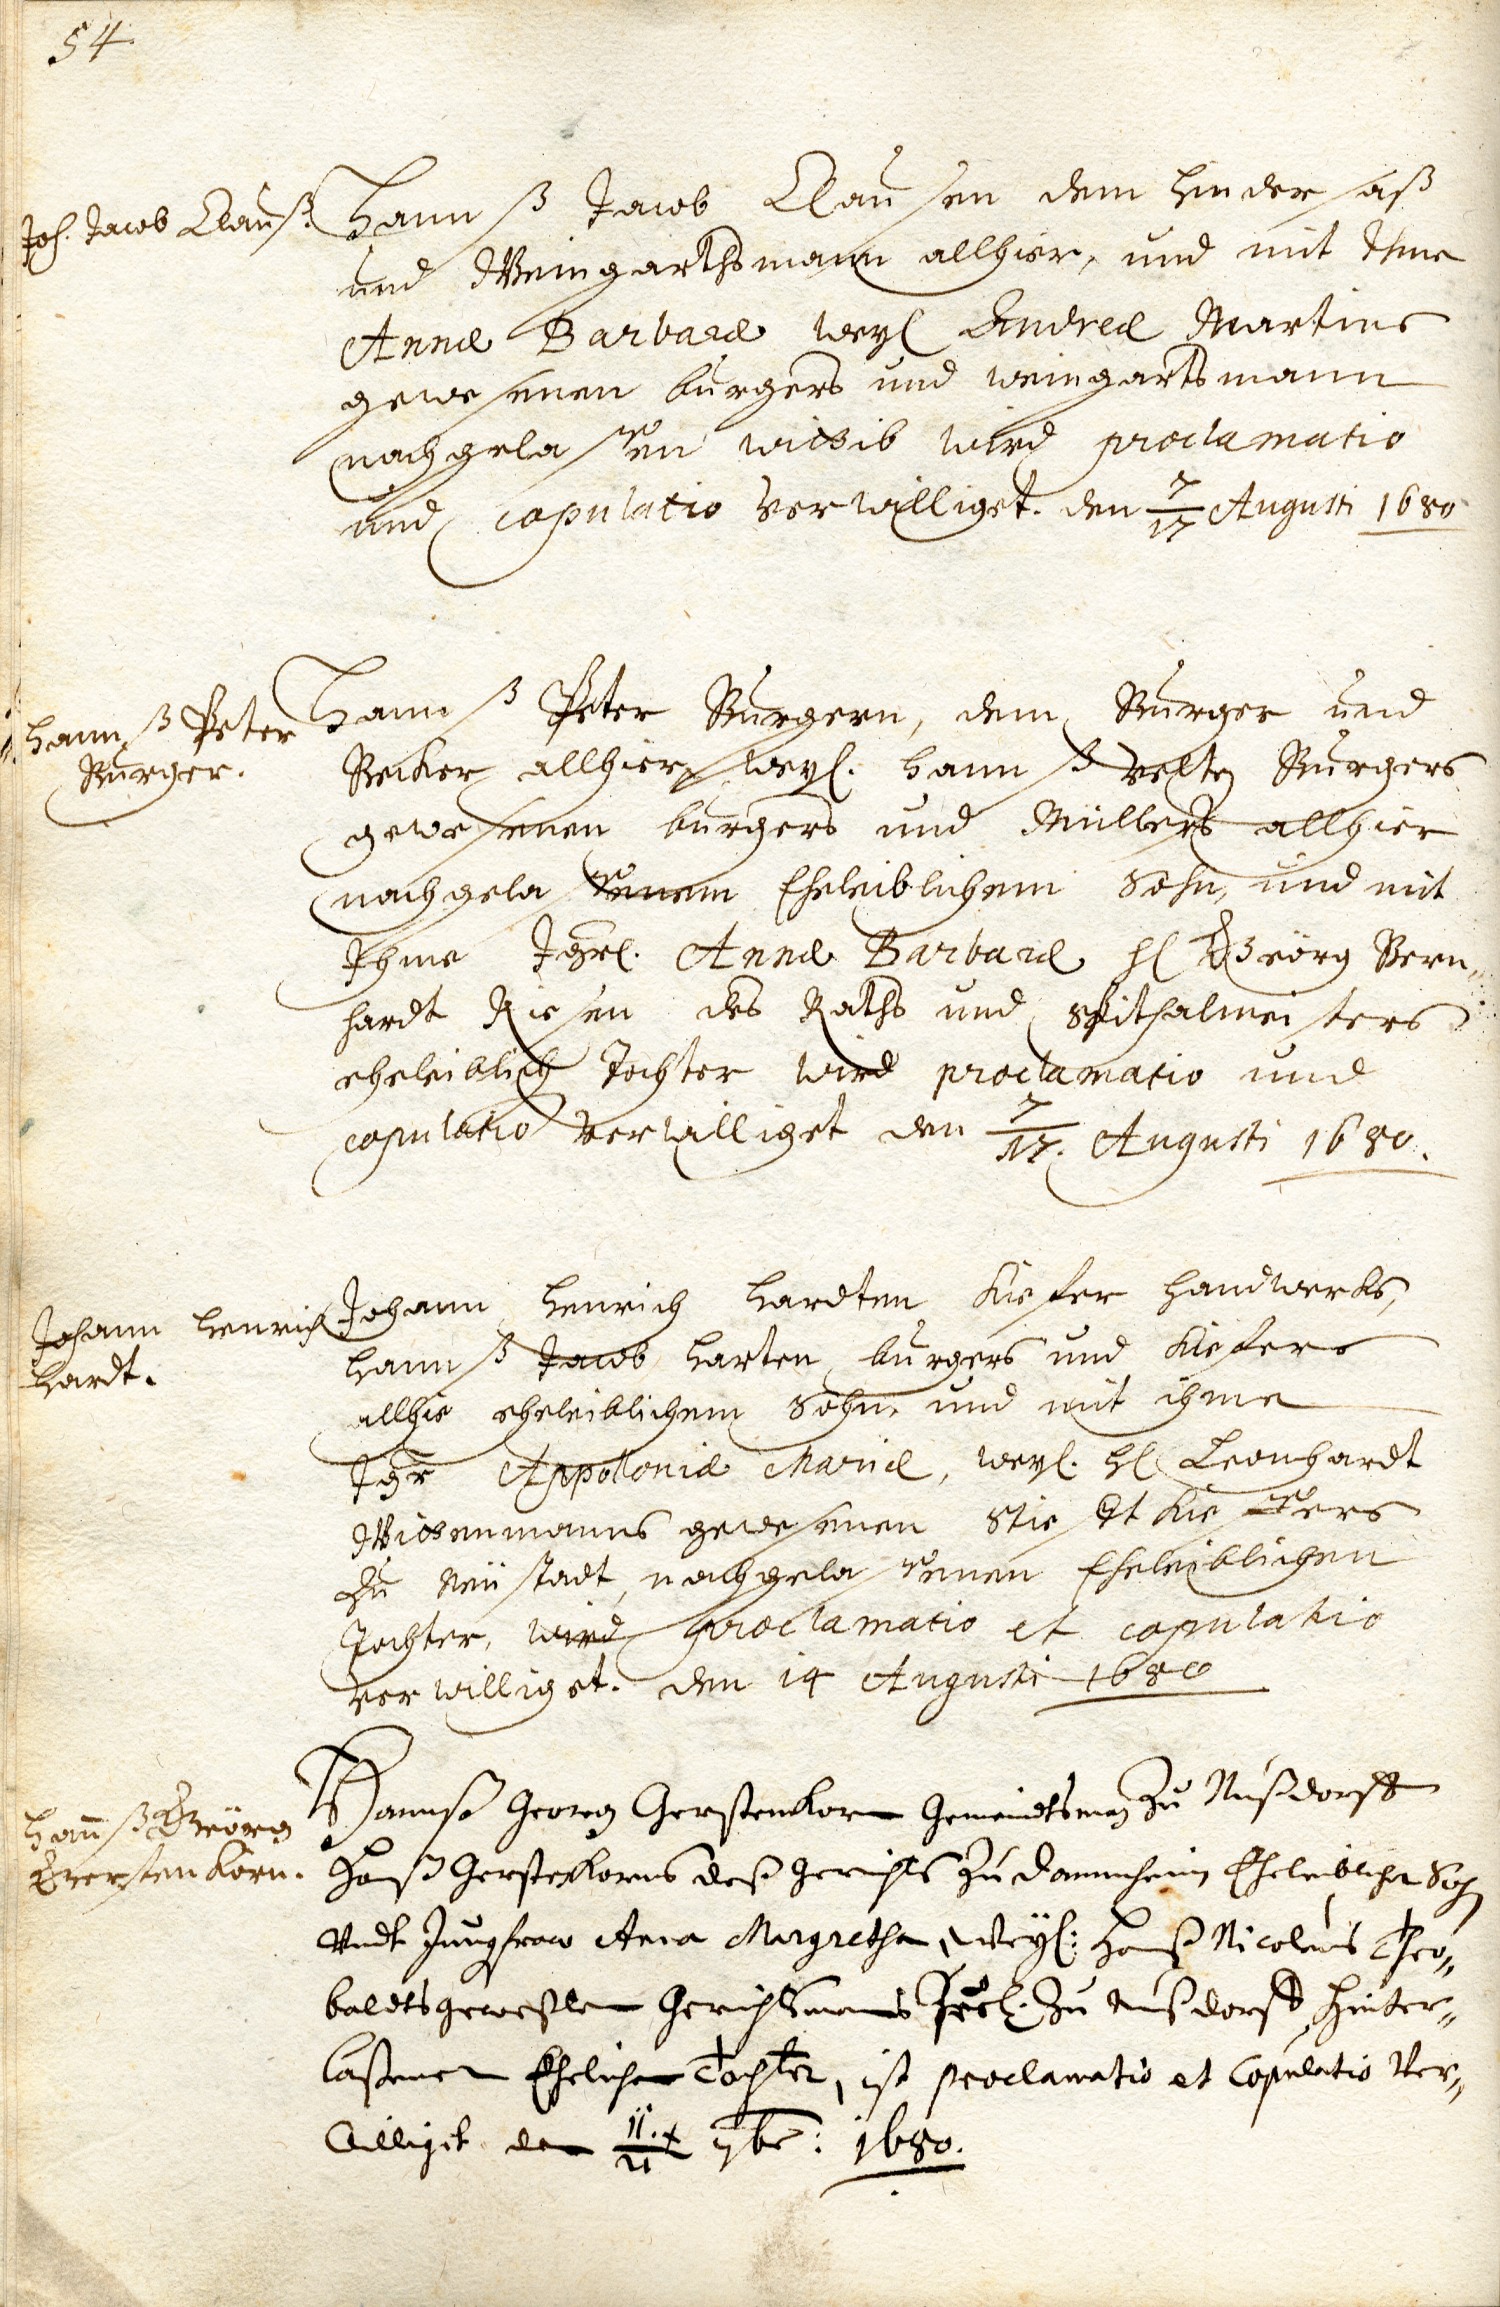 54.
Joh. Jacob Clauß.
Hannß Jacob Claußen dem hindersaß
und Weingarthsmann allhier, und mit Ihme
Annæ Barbaræ weyl Andreæ Martins
gewesenen burgers und weingartsmann
nachgelaßen wittib wird proclamatio
und copulatio verwilliget. den 7/17 Augusti 1680
Hannß Peter
Burger.
Hannß Peter Burgern, dem Burger und
Becker allhier, weyl. Hannß Velten Burgers
gewesenen burgers und Müllers allhier
nachgelaßenem Eheleiblichem Sohn, und mit
Ihme Jgfr. Annæ Barbaræ H Geörg Bern„
hardt Riesen des Raths und Spithalmeisters
eheleiblich Tochter wird proclamatio und
copulatio verwilliget den 7/17. Augusti 1680.
Johann Henrich
Hardt.
Johann Henrich Hardten Kiefer Handwercks,
Hannß Jacob Harten burgers und Kiefers
allhie eheleiblichem Sohn, und mit ihme
Jgfr Appoloniæ Mariæ, weyl. H Leonhardt
gewesenen Stifft Kieffers
zu Neüstadt, nachgelaßenen Eheleiblichen
Tochter, wird proclamatio et copulatio
verwilliget. den 14 Augusti 1680
Hannß Geörg
Gerstenkorn.
Hannß Georg Gerstenkorn Gemeindtsman zu Nußdorff
Hanß Gerstenkorns deß Gerichts zu Dammheim Eheleiblicher Sohn
Undt Jungfraw Anna Margretha, Weyl: Hanß Nicolaus Theo„
baldts geweßten Gerichtsmanns zu Nußdorff Hinter„
laßenen Ehelichen Tochter, ist proclamatio et Copulatio Ver„
williget den 7br: 1680.